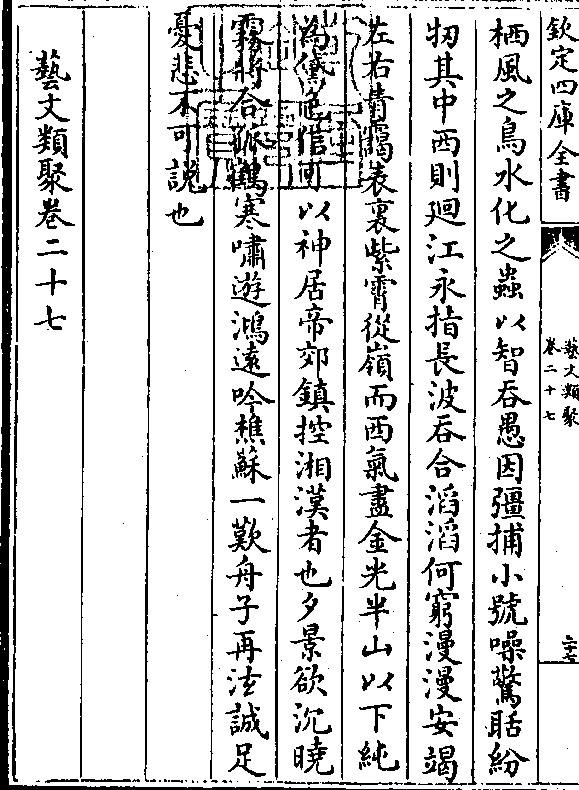 欽定四庫全書
藝文類聚
卷二十七
二十七
栖風之鳥水化之蟲以智吞愚因彊捕小號噪驚聒紛
牣其中西則廻江永指長波吞合滔滔何窮漫漫安竭
左右青靄表裏紫霄從嶺而西氣盡金光半山以下純
為黛色信可以神居帝郊鎮控湘漢者也夕景欲沉曉
霧將合孤鶴寒嘯遊鴻遠吟樵蘇一歎舟子再泣誠足
憂悲不可説也
藝文類聚卷二十七